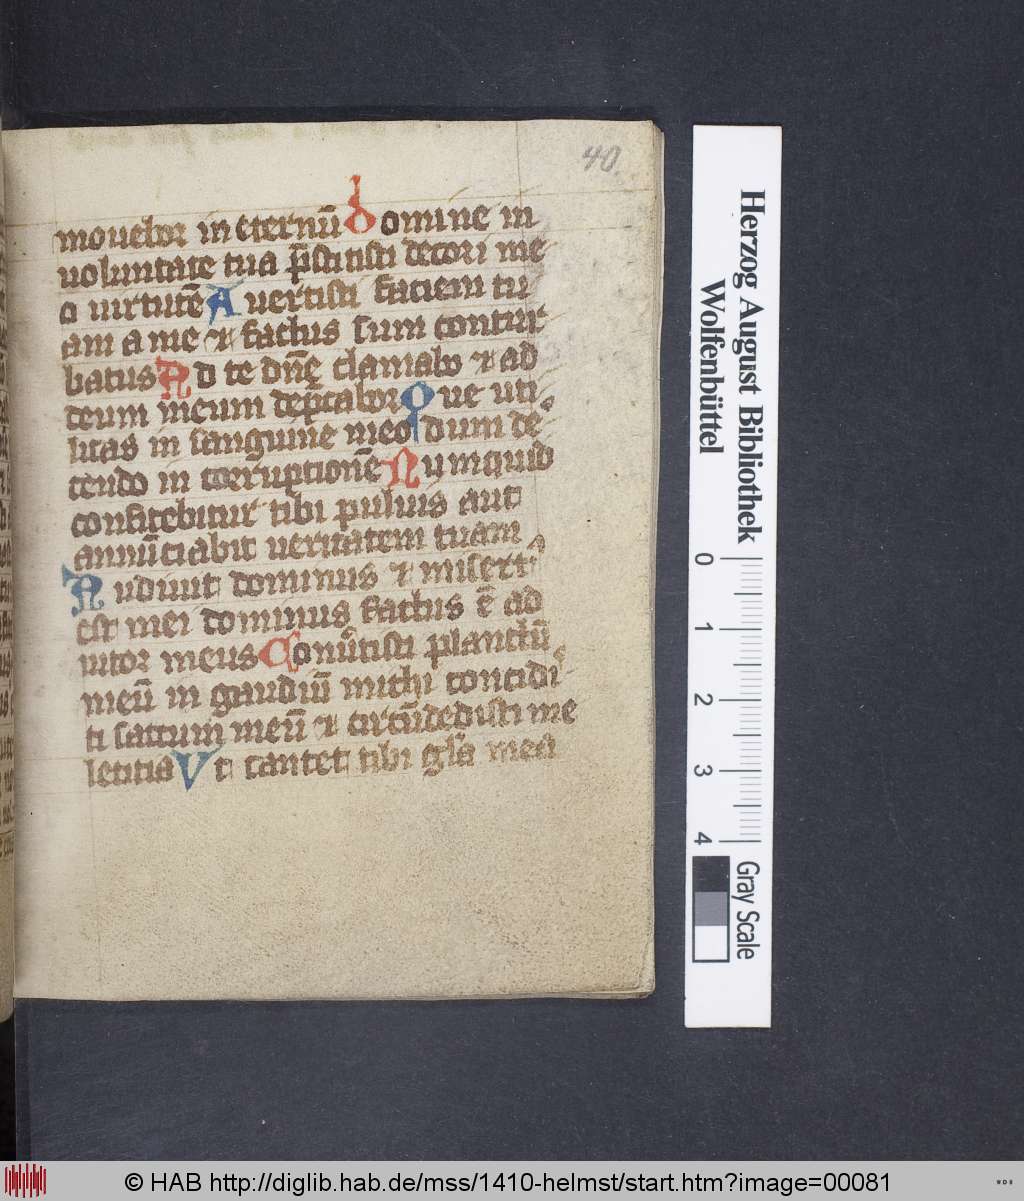 40
mouebor in eternū Domine in
uoluntate tua p̄stitisti decori me
o uirtutē Auertisti faciem tu
am a me ⁊ factus sum contur-
batus Ad te dn̄e clamabo ⁊ ad
deum meum dep̄cabor Que uti-
litas in sanguine meo dum de-
cendo in corruptionē Numquid
confitebitur tibi puluis aut
annūciabit ueritatem tuam
Audiuit dominus ⁊ misert'
est mei dominus factus ē ad
iutor meus Conu̅tisti planctū
meū in gaudiū michi concidi-
ti saccum meū ⁊ circūdedisti me
letitia Vt cantet tibi gl̄a mea
Herzog August Bibliothek
Wolfenbüttel
0
1
2
3
4
Gray Scale
© HAB http://diglib.hab.de/mss/1410-helmst/start.htm?image=00081